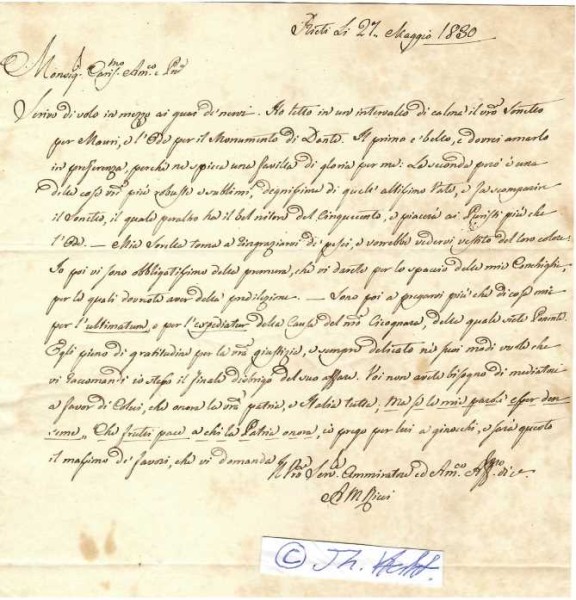 Rieti Li 27. Maggio 1830
Monsig.r Caris.mo Am.co e Pne
Scrivo di volo in mezzo ai guai di nervi. Ho letto in un intervallo di calma il vro Sonetto
per Mauri, e l'Ode per il Monumento di Dante. Il primo è bello, e dovrei amarlo
in preferenza, perchè ne spicca una favilla di gloria per me: La seconda però è una
delle cose vre più robuste e sublimi, degnissima di quell'altissimo Vate, e fa scomparire
il Sonetto, il quale peraltro ha il bel nitore del Cinquecento, e piacerà ai Puristi più che
l'Ode. — Mio torna a ringraziarvi de' pesci, e vorrebbe vedervi vestito del loro colore:
Io poi vi sono obbligatissimo della premura, che vi date per lo spaccio delle mie Conchiglie,
per le quali dovete aver della predilezione. — Sono poi a pregarvi più che di cosa mia
per l'ultimatum, o per l'expediatur della Causa del nro Cicognara, della quale siete Ponente.
Egli pieno di gratitudine per la vra giustizia, e sempre delicato ne' suoi modi vuole che
vi raccomandi io stesso il finale disbrigo del suo affare. Voi non avete bisogno di mediatori
a favor di Colui, che onora la vra patria, e Italia tutta. Ma se le mie preci esser den
"Che frutti pace a chi la Patria onora, io prego per lui a ginocchi, e sarà questo
il massimo de' favori, che vi domanda Il Vro Serv.e Ammiratore ed Am.co Aff.mo
A M Ricci
© Th.